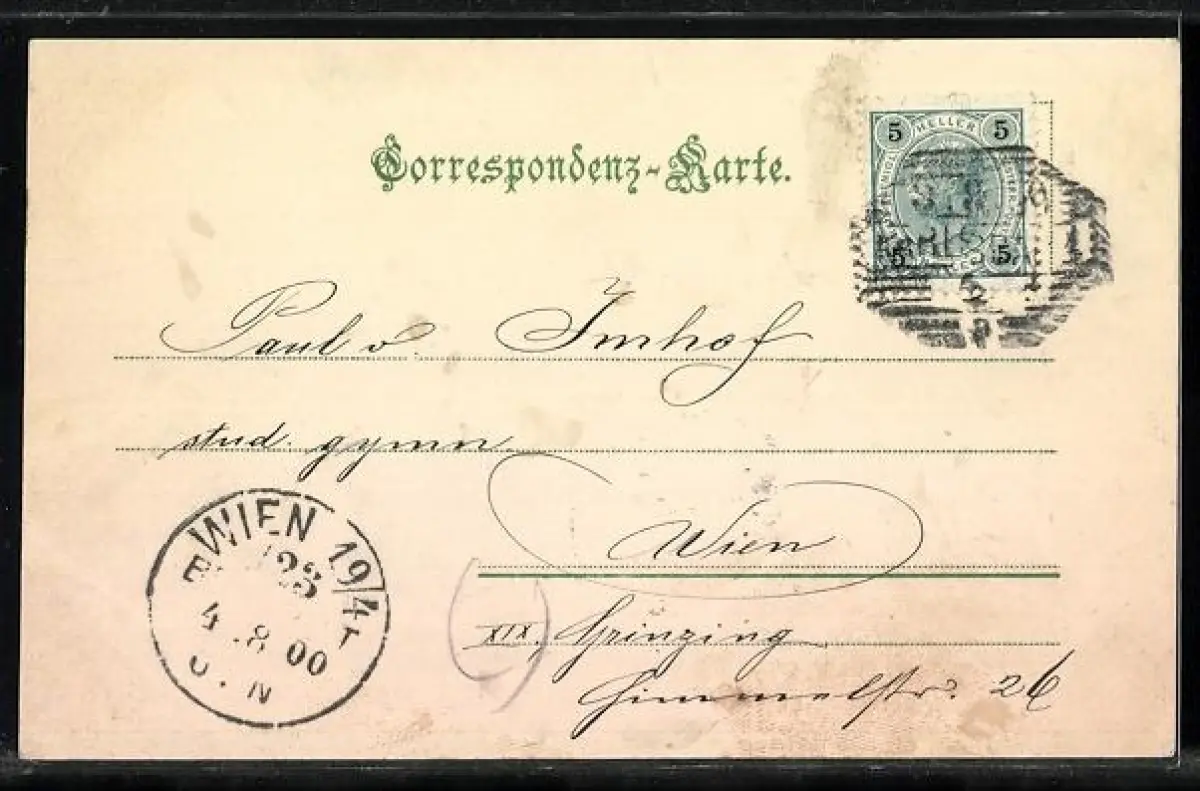 Correspondenz-Karte.
5 HELLER 5
5 5
Paul v. Imhof
stud. gymn.
Wien
XIX, Grinzing
Himmelstr. 26
WIEN 19/4
4 8 00